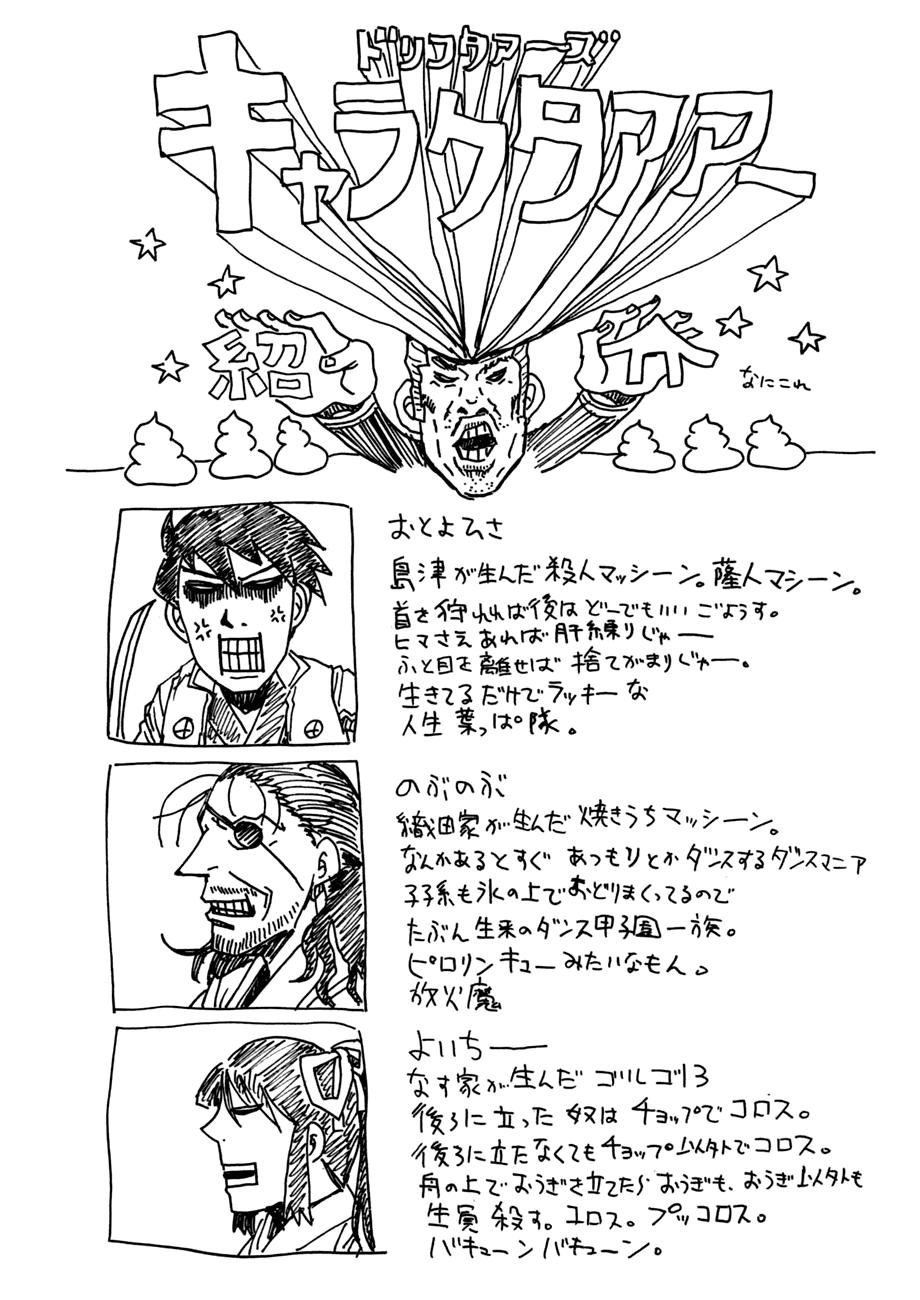 ドリフタァーズ
キャラクタァァー
紹介
なにこれ
おとよひさ
島津が生んだ殺人マッシーン。薩人マシーン。
首さ狩れれば後はどーでもいいごようす。
ヒマさえあれば肝練りじゃー
ふと目を離せば捨てがまりじゃー。
生きてるだけでラッキーな
人生葉っぱ隊。
のぶのぶ
織田家が生んだ焼きうちマッシーン。
なんかあるとすぐあつもりとかダンスするダンスマニア
子孫も氷の上でおどりまくってるので
たぶん生来のダンス甲子園一族。
ピロリンキューみたいなもん。
放火魔
よいちー
なす家が生んだゴルゴ13
後ろに立った奴はチョップでコロス。
後ろに立たなくてもチョップ以外でコロス。
舟の上でおうぎさ立てたらおうぎも、おうぎ以外も
全員殺す。コロス。ブッコロス。
バキューンバキューン。